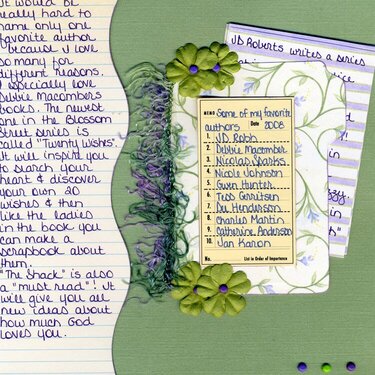 It would be
really hard to
name only one
favorite author
because I love
so many for
different reasons.
I especially love
Debbie Macomber's
books. The newest
one in the Blossom
Street series is
called "Twenty Wishes".
It will inspire you
to search your
heart & discover
your own 20
wishes & then
like the ladies
in the book you
can make a
scrapbook about
them.
"The Shack" is also
a "must read"! It
will give you all
new ideas about
how much God
loves you.
JD Roberts writes a series
MEMO Some of my favorite
authors Date 2008
1. JD Robb
2. Debbie Macomber
3. Nicolas Sparks
4. Nicole Johnson
5. Gwen Hunter
6. Tess Gerritsen
7. Dee Henderson
8. Charles Martin
9. Catherine Anderson
10. Jan Karon
No. List in Order of Importance